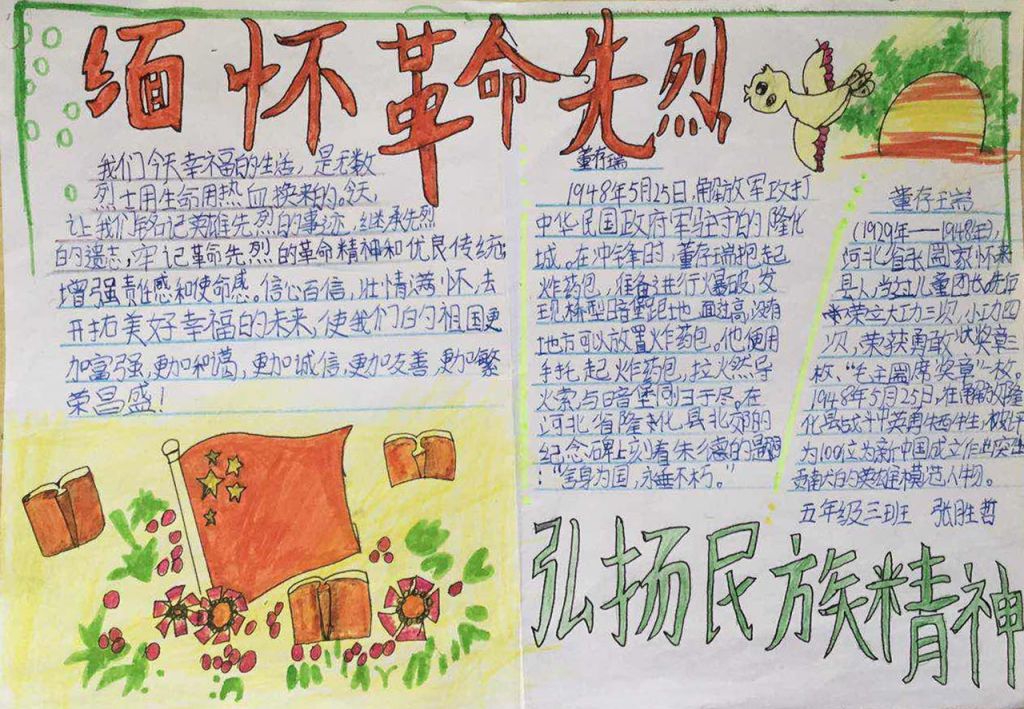 缅怀革命先烈
我们今天幸福的生活，是无数
烈士用生命用热血换来的。今天，
让我们铭记英雄先烈的事迹，继承先烈
的遗志，牢记革命先烈的革命精神和优良传统，
增强责任感和使命感。信心百信，壮情满怀，去
开拓美好幸福的未来，使我们的祖国更
加富强，更加和谐，更加诚信，更加友善，更加繁
荣昌盛！
董存瑞
1948年5月25日，解放军攻打
中华民国政府军驻守的隆化
城。在冲锋时，董存瑞抱起
炸药包，准备进行爆破，发
现桥型暗堡距地面过高，没有
地方可以放置炸药包。他便用
手托起炸药包，拉火然导
火索与暗堡同归于尽。在
河北省隆化县北郊的
纪念碑上刻着朱德的题词
："舍身为国，永垂不朽。"
董存瑞
（1929年——1948年），
河北省张家口怀来
县人，当过儿童团长，先后
荣立大功三次，小功四
次，荣获勇敢状奖章三
枚，"毛主席奖章"一枚。
1948年5月25日，在解放隆
化县战斗中英勇牺牲，被评
为100位为新中国成立作出突出
贡献的英雄模范人物。
五年级三班 张胜哲
弘扬民族精神